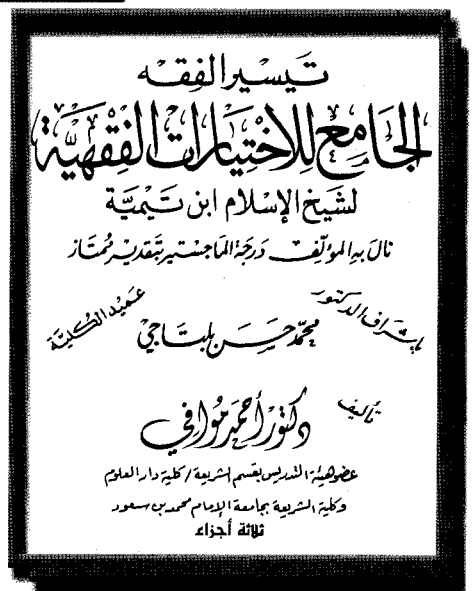 تيسير الفقه
الجامع للاختيارات الفقهية
لشيخ الإسلام ابن تيمية
نال به المؤلف درجة الماجستير بتقدير ممتاز
بإشراف الدكتور محمد حسن بلتاجي عميد الكلية
تأليف
دكتور أحمد موافي
عضو هيئة التدريس بقسم الشريعة / كلية دار العلوم
وكلية الشريعة بجامعة الإمام محمد بن سعود
ثلاثة أجزاء